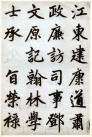 江東建康道肅
政廉訪司副
文原記翰林學
士承旨榮祿